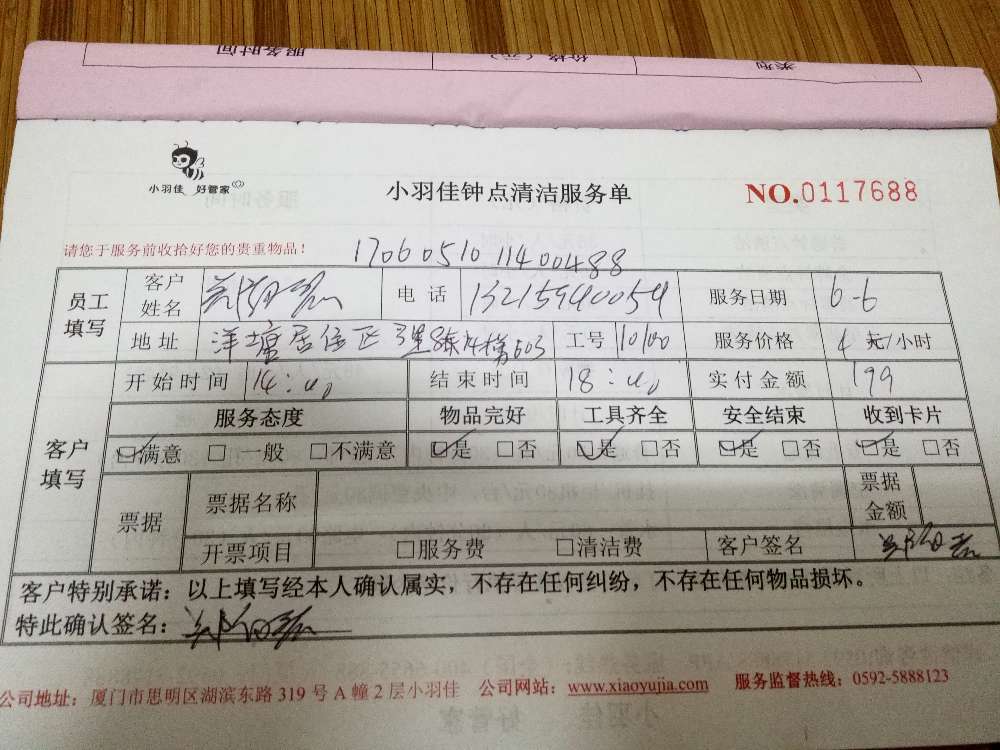 服务时间 价格（元） 类别
小羽佳 好管家
小羽佳钟点清洁服务单
NO.0117688
请您于服务前收拾好您的贵重物品！
1706051011400488
员工填写 客户姓名 电话 13215940054 服务日期 6-6
地址 洋塘居住区 603 工号 10100 服务价格 4 元/小时
客户填写 开始时间 14: 结束时间 18: 实付金额 199
服务态度 物品完好 工具齐全 安全结束 收到卡片
☑满意 □一般 □不满意 ☑是 □否 ☑是 □否 ☑是 □否 ☑是 □否
票据 票据名称 票据金额
开票项目 □服务费 □清洁费 客户签名
客户特别承诺：以上填写经本人确认属实，不存在任何纠纷，不存在任何物品损坏。
特此确认签名：
公司地址：厦门市思明区湖滨东路 319 号 A 幢 2 层小羽佳 公司网站：www.xiaoyujia.com 服务监督热线：0592-5888123